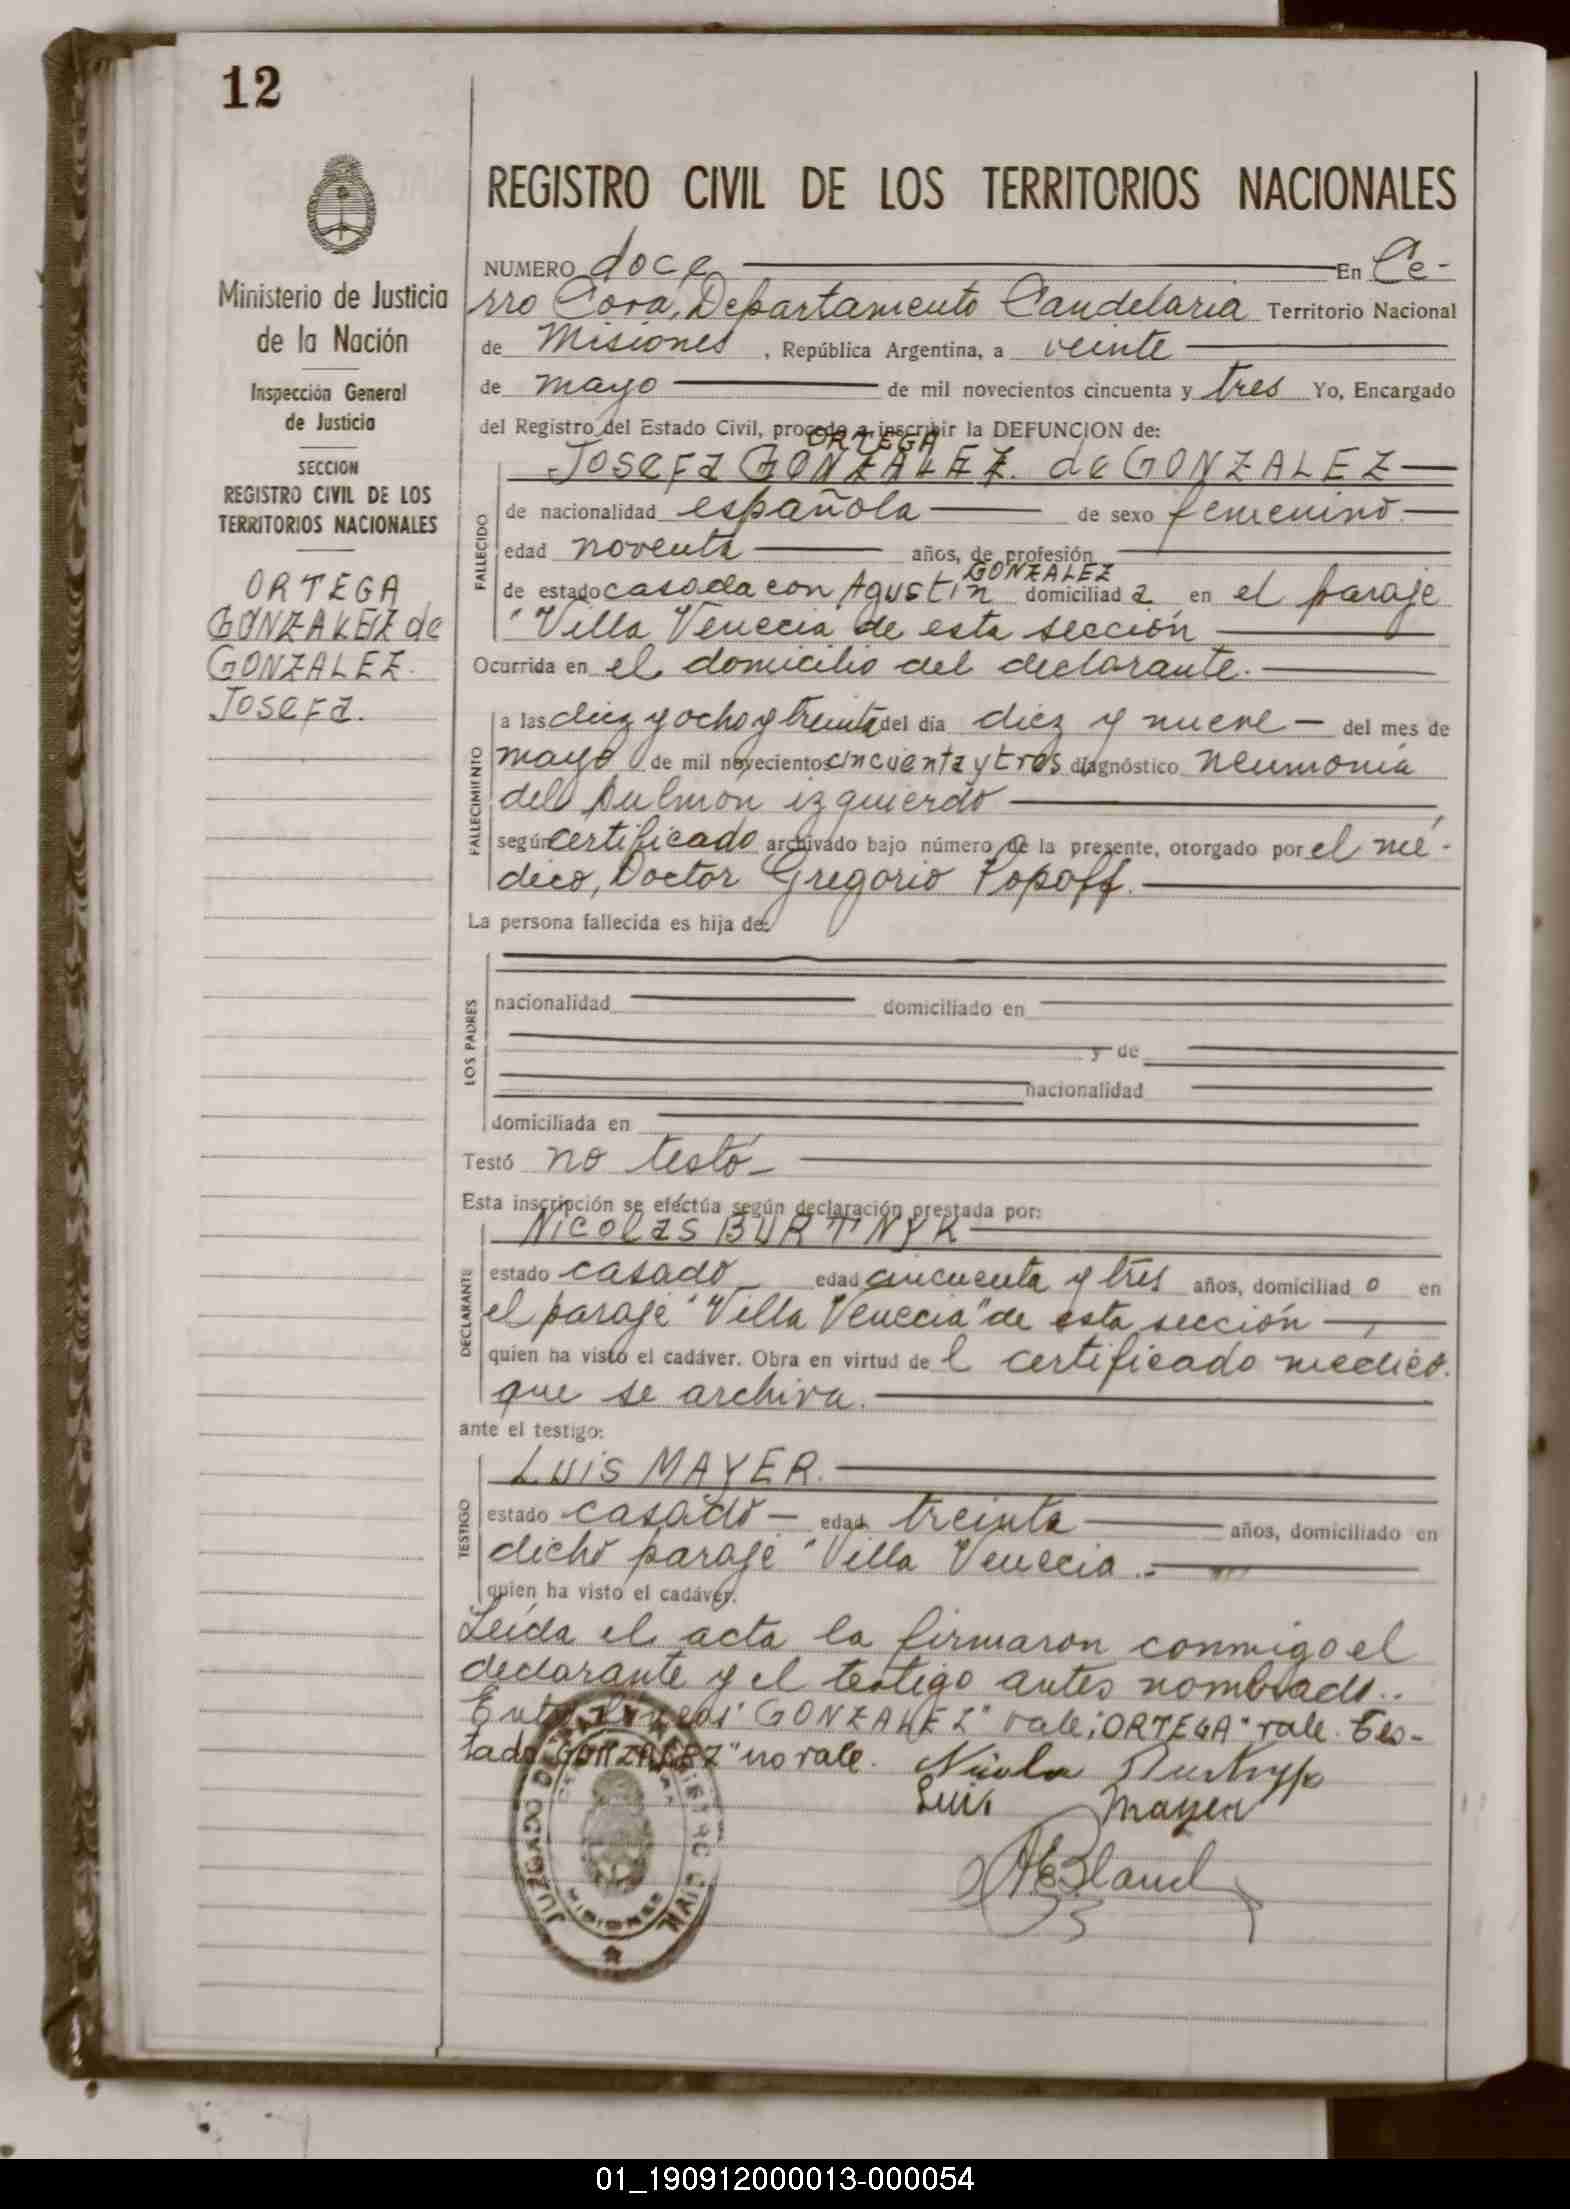 12
REGISTRO CIVIL DE LOS TERRITORIOS NACIONALES
Ministerio de Justicia
de la Nación
Inspección General
de Justicia
SECCION
REGISTRO CIVIL DE LOS
TERRITORIOS NACIONALES
ORTEGA
GONZALEZ de
GONZALEZ.
Josefa.
NUMERO doce En Ce-
rro Cora, Departamento Candelaria Territorio Nacional
de Misiones, República Argentina, a veinte
de mayo de mil novecientos cincuenta y tres Yo, Encargado
del Registro del Estado Civil, procedo a inscribir la DEFUNCION de:
ORTEGA
Josefa GONZALEZ. de GONZALEZ
FALLECIDO
de nacionalidad española de sexo femenino.
edad noventa años, de profesión
GONZALEZ
de estado casada con Agustin domiciliad a en el paraje
"Villa Venecia de esta sección
Ocurrida en el domicilio del declarante.
FALLECIMIENTO
a las diez y ocho y treinta del día diez y nueve del mes de
mayo de mil novecientos cincuenta y tres diagnóstico neumonia
del pulmon izquierdo
según certificado archivado bajo número de la presente, otorgado por el mé-
dico, Doctor Gregorio Popoff.
La persona fallecida es hija de:
LOS PADRES
nacionalidad domiciliado en
y de
nacionalidad
domiciliada en
Testó no testó
Esta inscripción se efectúa según declaración prestada por:
Nicolas BURTNYK
DECLARANTE
estado casado edad cincuenta y tres años, domiciliad o en
el paraje "Villa Venecia" de esta sección
quien ha visto el cadáver. Obra en virtud de l certificado medico.
que se archiva.
ante el testigo:
Luis MAYER.
TESTIGO
estado casado edad treinta años, domiciliado en
dicho paraje "Villa Venecia.
quien ha visto el cadáver.
Leida el acta la firmaron conmigo el
declarante y el testigo antes nombrado..
Entre lineas "GONZALEZ" vale; "ORTEGA" vale. Tes-
tado "GONZALEZ" no vale.
Luis Mayer
JUZGADO DE PAZ REGISTRO CIVIL
MISIONES
01_190912000013-000054